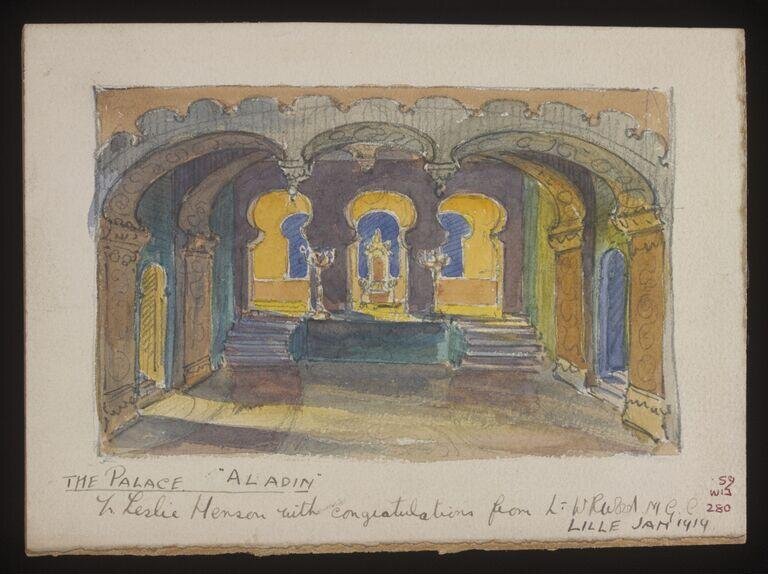 THE PALACE. "ALADIN"
To Leslie Henson with congratulations from Lt W M.G.C
LILLE JAN 1919
59
W13
280